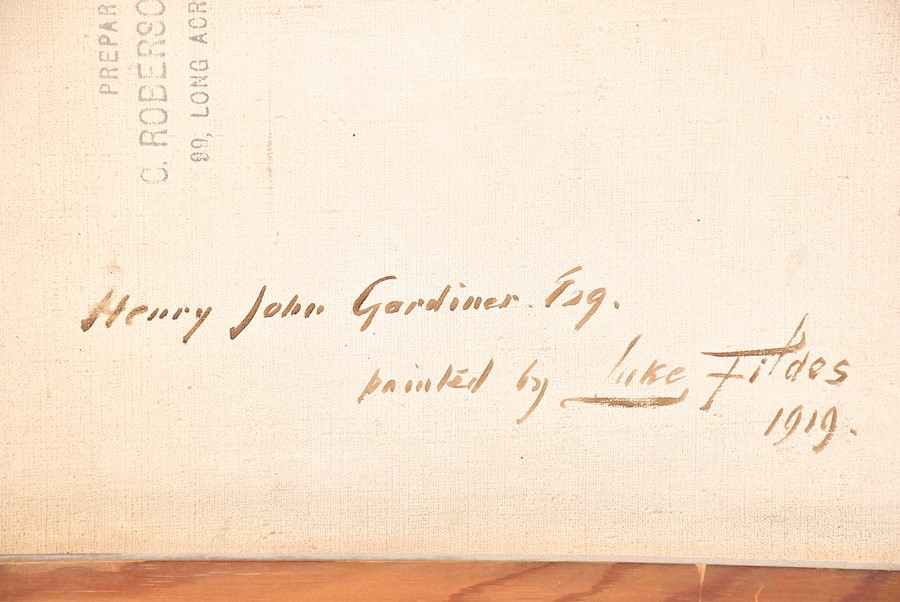 PREPAR
C. ROBERSO
99, LONG ACR
Henry John Gardiner. Esq.
painted by Luke Fildes
1919.